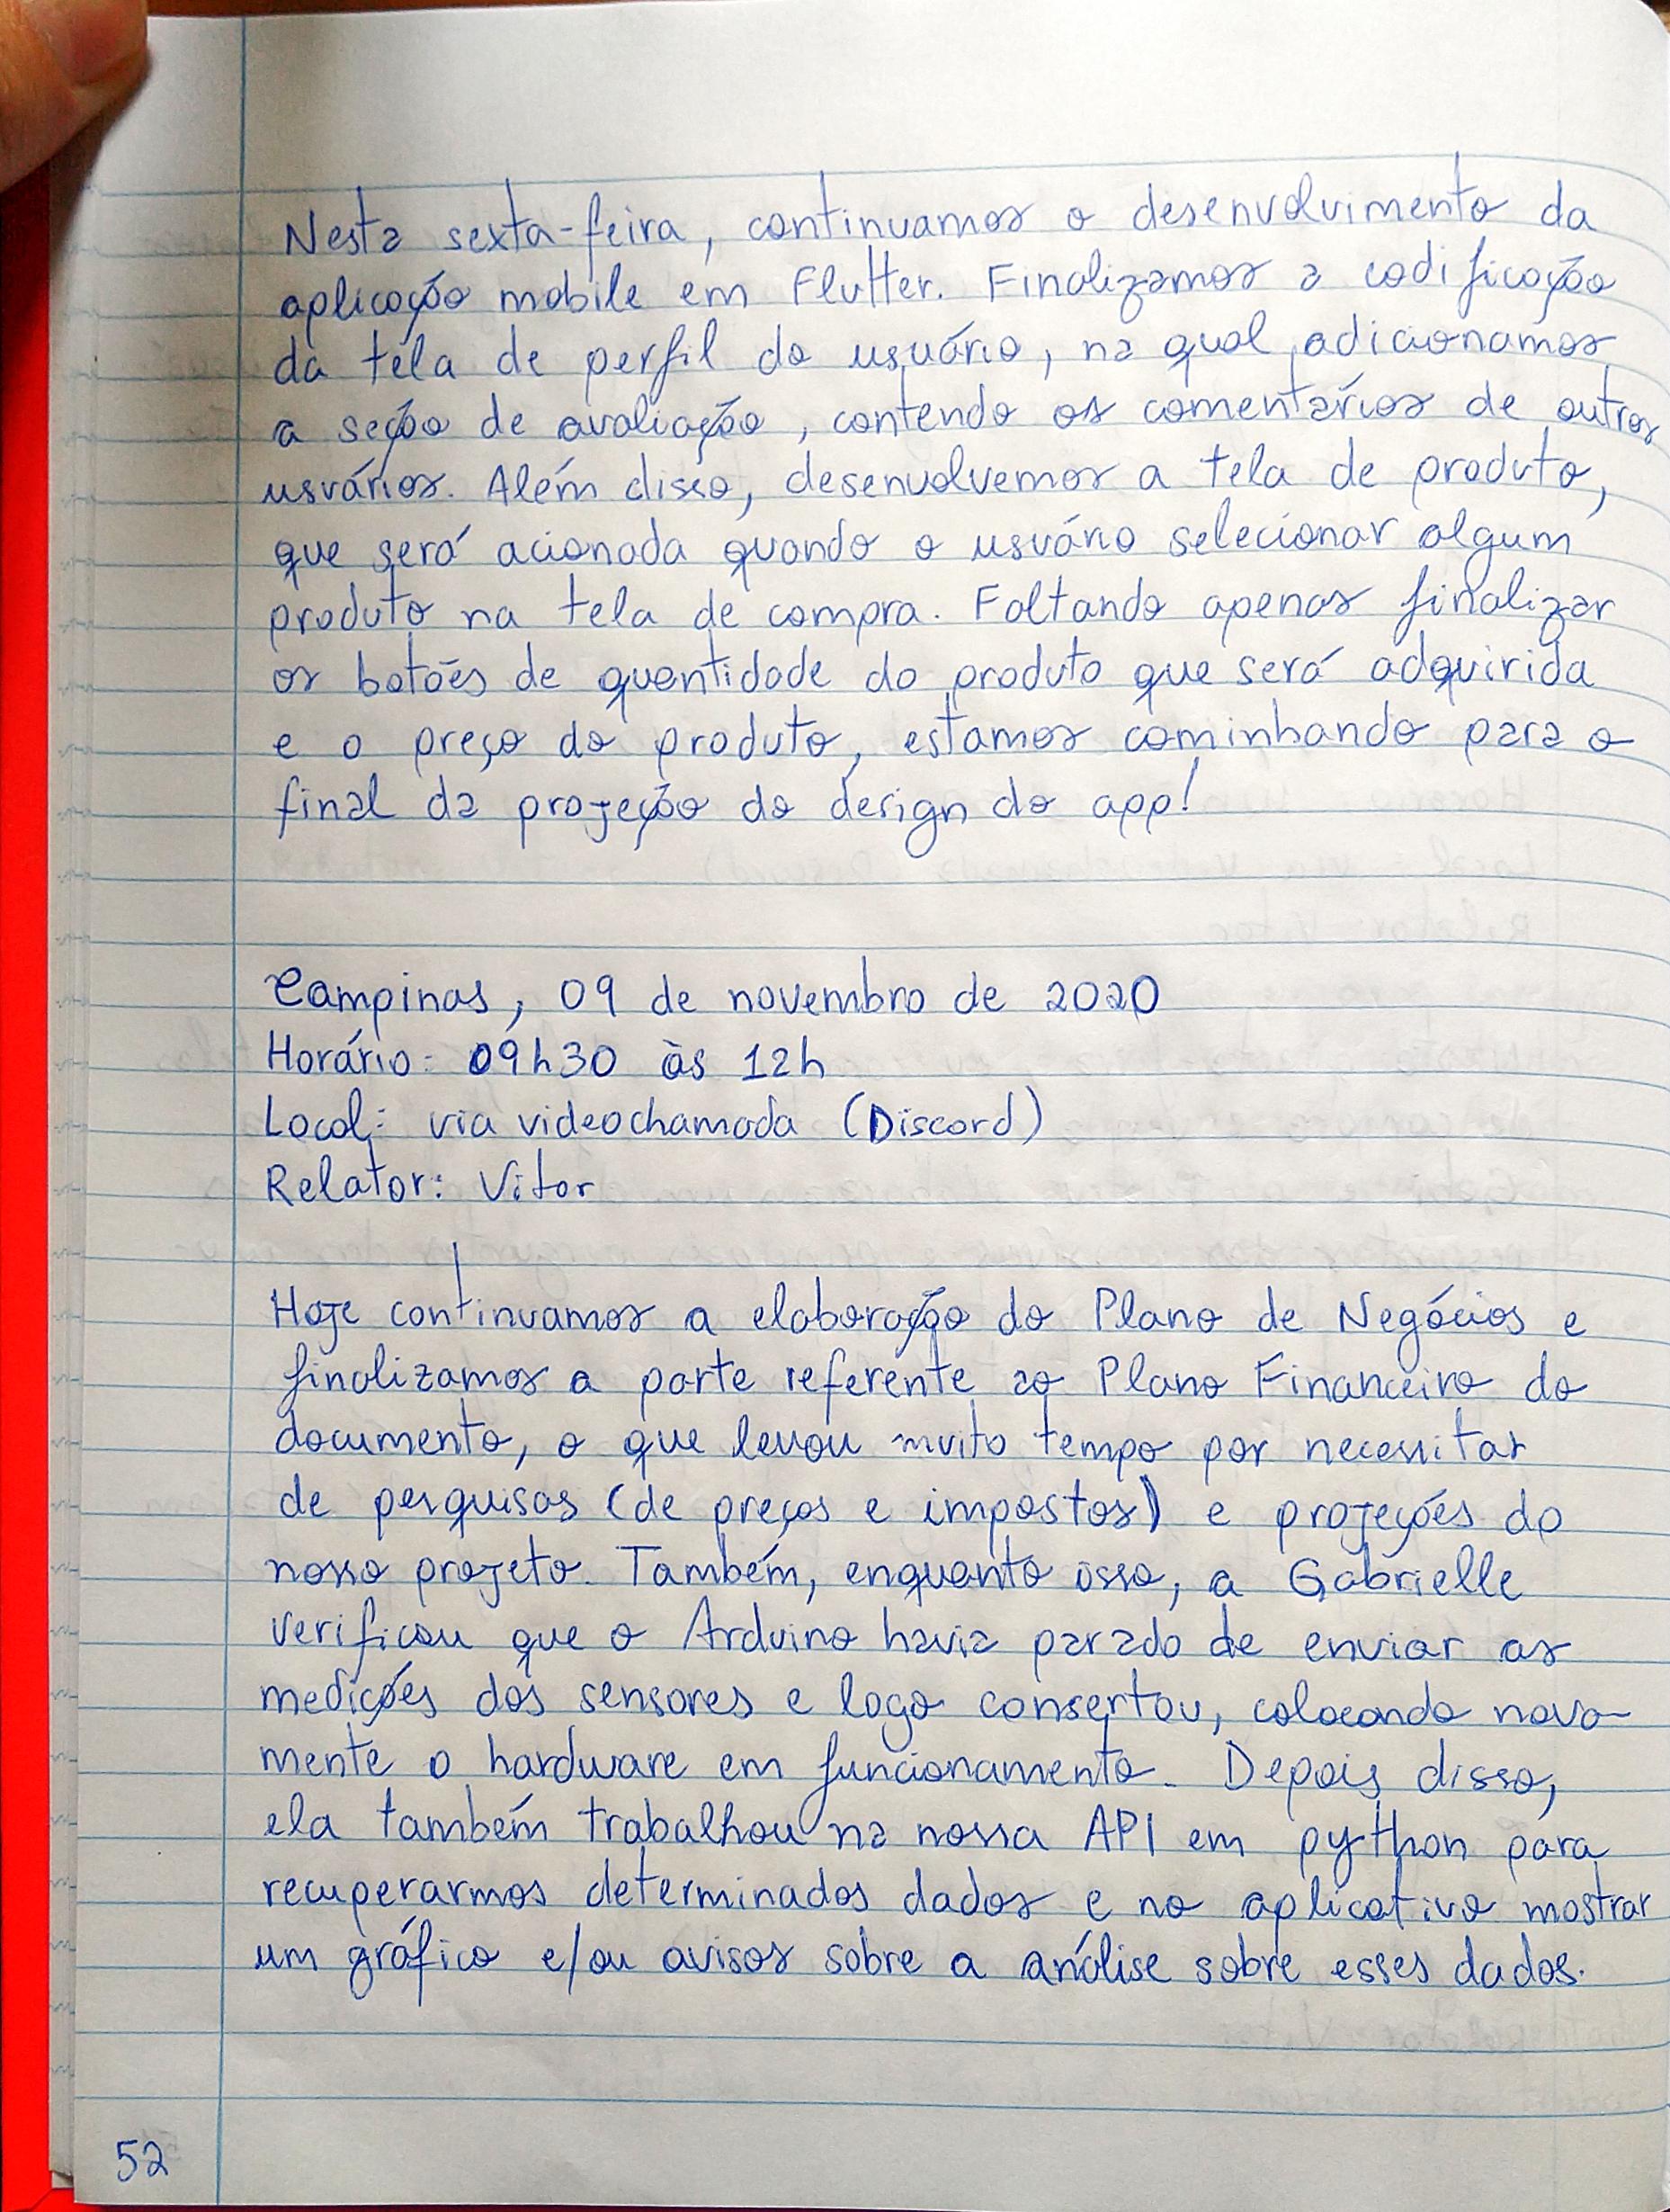 Nesta sexta-feira, continuamos o desenvolvimento da
aplicação mobile em Flutter. Finalizamos a codificação
da tela de perfil do usuário, na qual adicionamos
a seção de avaliação, contendo os comentários de outros
usuários. Além disso, desenvolvemos a tela de produto,
que será acionada quando o usuário selecionar algum
produto na tela de compra. Faltando apenas finalizar
os botões de quantidade do produto que será adquirida
e o preço do produto, estamos caminhando para o
final da projeção do design do app!
Campinas, 09 de novembro de 2020
Horário: 09h30 às 12h
Local: via videochamada (Discord)
Relator: Vitor
Hoje continuamos a elaboração do Plano de Negócios e
finalizamos a parte referente ao Plano Financeiro do
documento, o que levou muito tempo por necessitar
de pesquisas (de preços e impostos) e projeções do
nosso projeto. Também, enquanto isso, a Gabrielle
verificou que o Arduino havia parado de enviar as
medições dos sensores e logo consertou, colocando nova-
mente o hardware em funcionamento. Depois disso,
ela também trabalhou na nossa API em python para
recuperarmos determinados dados e no aplicativo mostrar
um gráfico e/ou avisos sobre a análise sobre esses dados.
52